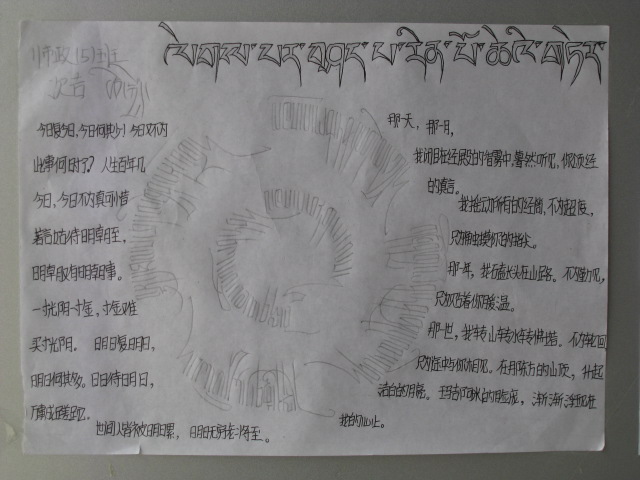 ལེགས་པར་བཤད་པ་རིན་པོ་ཆེའི་གཏེར་
师政(5)班
次吉
今日复今日,今日何其少!今日又不为
此事何日了?人生百年几
今日,今日不为真可惜
若言姑待明朝至,
明朝又有明朝事。
一寸光阴一寸金,寸金难
买寸光阴。 明日复明日,
明日何其多。日日待明日,
万事成蹉跎。
世间人皆被明日累,明日无穷老将至。
那一天,那一月,
我闭目在经殿的香雾中,蓦然听见,你颂经
的真言。
我摇动所有的经筒,不为超度,
只为触摸你的指尖。
那一年,我磕长头在山路。不为觐见,
只为贴着你的温暖。
那一世,我转山转水转佛塔。不为轮回
只为途中与你相见。在那东方的山顶,升起
洁白的月亮。玛吉阿米的脸庞,渐渐浮现在
我的心上。